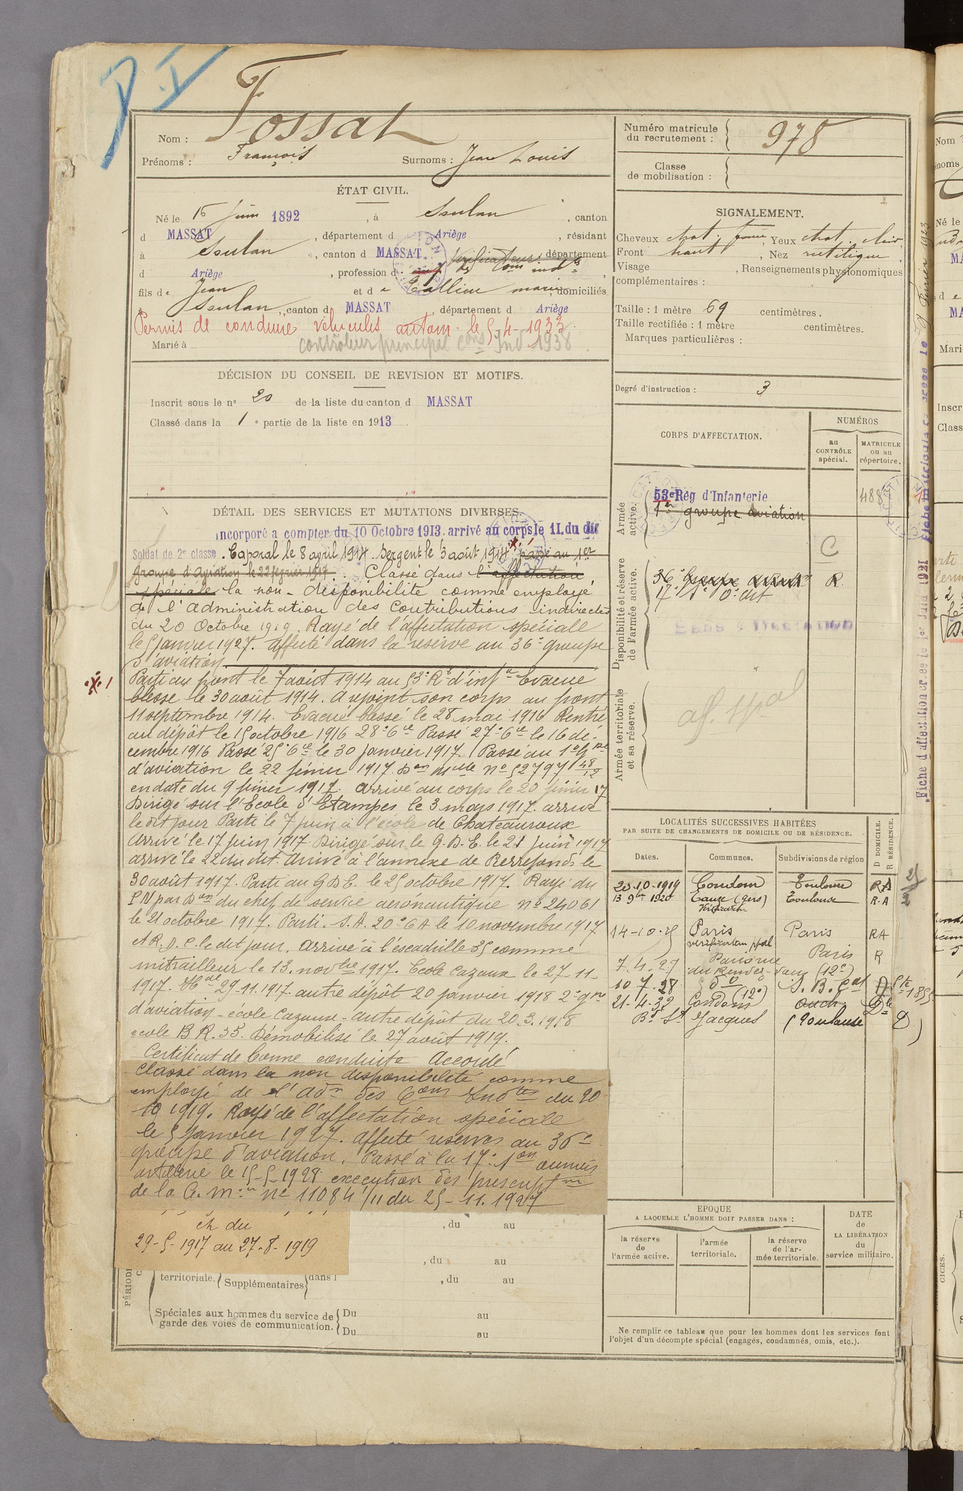 D I
Nom : Fossat
Prénoms : François Surnoms : Jean Louis
ÉTAT CIVIL.
Né le 15 juin 1892, à Soulan, canton
d MASSAT, département d Ariège, résidant
à Soulan, canton d MASSAT, département
d Ariège, profession d
fils de Jean et de marie domiciliés
à Soulan, canton d MASSAT département d Ariège
Permis de conduire véhicules autom. le 5-4-1933
Marié à contrôleur principal Cons Ind 1938
DÉCISION DU CONSEIL DE REVISION ET MOTIFS.
Inscrit sous le n° 20 de la liste du canton d MASSAT
Classé dans la 1e partie de la liste en 1913
DÉTAIL DES SERVICES ET MUTATIONS DIVERSES.
incorporé a compter du 10 Octobre 1913. arrivé au corps le 11. du dit
Soldat de 2e classe. Caporal le 8 avril 1914. Sergent le 3 août 1914. passé au 1er
groupe d'aviation le 22 février 1917. Classé dans l'affectation
spéciale la non-disponibilité comme employé
de l'administration des Contributions indirectes
du 20 Octobre 1919. Rayé de l'affectation spéciale
le 5 janvier 1927. affecté dans la réserve au 36e groupe
d'aviation
Parti au front le 7 août 1914 au 53e R d'infie Evacué
blessé le 30 août 1914. A rejoint son corps au front
11 septembre 1914. Evacué blessé le 28 mai 1916 Rentré
au dépôt le 15 octobre 1916 28e Cie Passé 27e Cie le 16 dé-
cembre 1916 Passé 25e Cie le 30 janvier 1917. Passé au 1er gpe
d'aviation le 22 février 1917 Don Mlle No 52797
en date du 9 février 1917. arrivé au corps le 20 février 17
Dirigé sur l'Ecole d'Etampes le 3 mars 1917. arrivé
le dit jour Parti le 7 juin à l'école de Chateauroux
arrivé le 17 juin 1917 Dirigé sur le G.D.E. le 21 juin 1917
arrivé le 22 du dit arrivé à l'annexe de le
30 août 1917. Parti au G D E. le 25 octobre 1917. Rayé du
P N par Don du chef de service aéronautique no 24061
le 21 octobre 1917. Parti. S.A. 20e C A le 10 novembre 1917
le dit jour. arrivé à l'escadrille 35 comme
mitrailleur le 13. novbre 1917. Ecole Cazaux le 27-11-
1917. 29.11.1917 autre dépôt 20 janvier 1918 2e gpe
d'aviation - école Cazaux - autre dépôt du 20.3.1918
école B R. 35. Démobilisé le 27 août 1919.
Certificat de bonne conduite Accordé
Classé dans la non disponibilité comme
employé de l'Adon des Cons Indtes du 20-
10 1919. Rayé de l'affectation spéciale
le 5 janvier 1927. affecté réserves au 36e
groupe d'aviation. Passé à la 17e
le 15-5-1928 exécution des prescriptons
de la C. m. no 11084/11 du 25-11.1927
ch du
29-5-1917 au 27-8-1919
territoriale. Supplémentaires dans l , du au
, du au
, du au
Spéciales aux hommes du service de garde des voies de communication. Du au
Du au
Numéro matricule du recrutement : 978
Classe de mobilisation :
SIGNALEMENT.
Cheveux chat. , Yeux chat. clair
Front haut , Nez rectiligne
Visage , Renseignements physionomiques
complémentaires :
Taille : 1 mètre 69 centimètres.
Taille rectifiée : 1 mètre centimètres.
Marques particulières :
Degré d'instruction : 3
CORPS D'AFFECTATION.
NUMÉROS
au CONTRÔLE spécial.
MATRICULE ou au répertoire.
Armée active.
53e Rég d'Infanterie
1er groupe aviation
Disponibilité et réserve de l'armée active.
36e
C
R
Armée territoriale et sa réserve.
af. spal
LOCALITÉS SUCCESSIVES HABITÉES
PAR SUITE DE CHANGEMENTS DE DOMICILE OU DE RÉSIDENCE.
Dates. Communes. Subdivisions de région D DOMICILE. R RÉSIDENCE.
20-10-1919 Condom Toulouse RA
13 9bre 1920 Eauze (Gers) Toulouse R.A
14-10-25 Paris Paris RA
vérificateur ppal
7.4.27 Paris rue Paris R
du Rendez-vous (12e)
10-7-28 do (12e) D
21-4-32 Condom Auch
Bd St Jacques (Toulouse
EPOQUE
A LAQUELLE L'HOMME DOIT PASSER DANS :
la réserve de l'armée active.
l'armée territoriale.
la réserve de l'armée territoriale.
DATE DE LA LIBÉRATION du service militaire.
Ne remplir ce tableau que pour les hommes dont les services font
l'objet d'un décompte spécial (engagés, condamnés, omis, etc.).